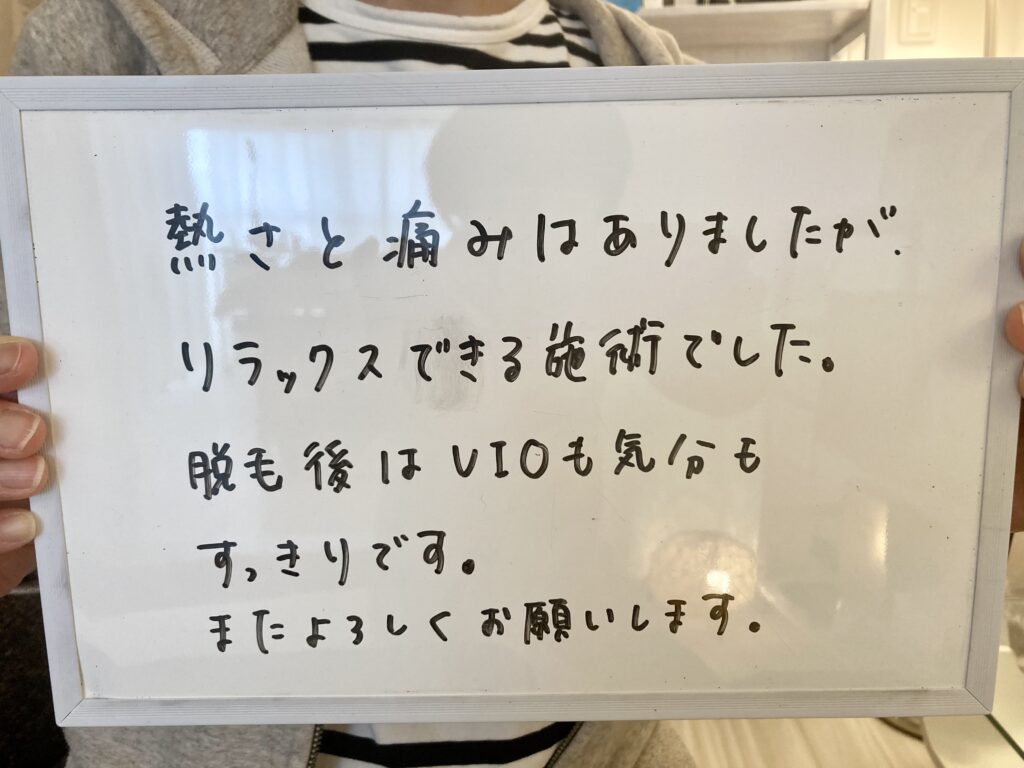 熱さと痛みはありましたが、
リラックスできる施術でした。
脱毛後はVIOも気分も
すっきりです。
またよろしくお願いします。